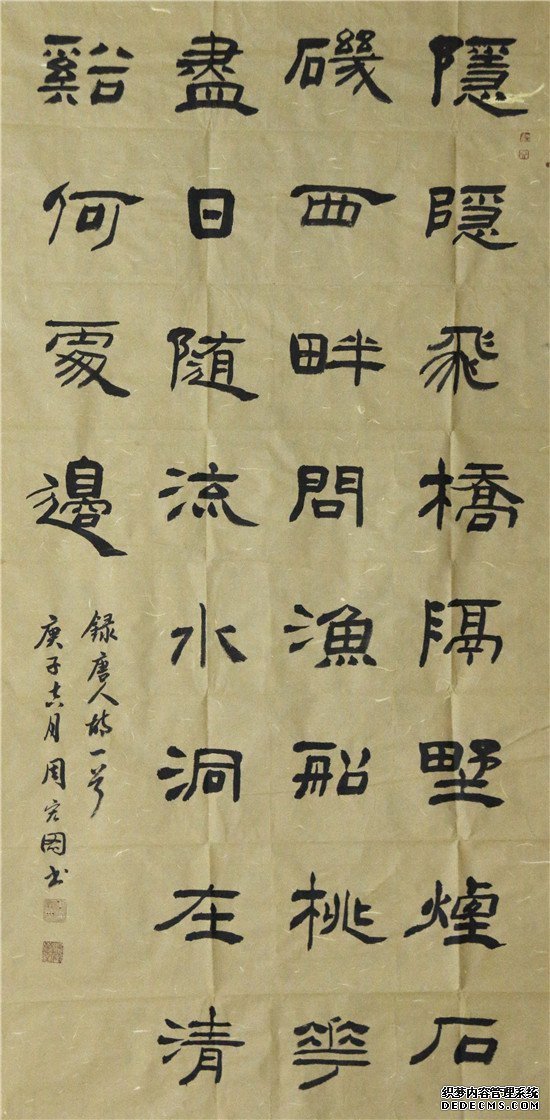 隱隱飛橋隔野煙石
磯西畔問漁船桃花
盡日隨流水洞在清
谿何處邊
録唐人詩一首
庚子六月周宏國书
织梦内容管理系统
DEDECMS.COM